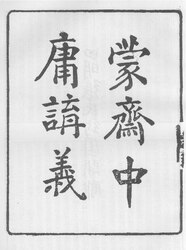 蒙齋中
庸講義